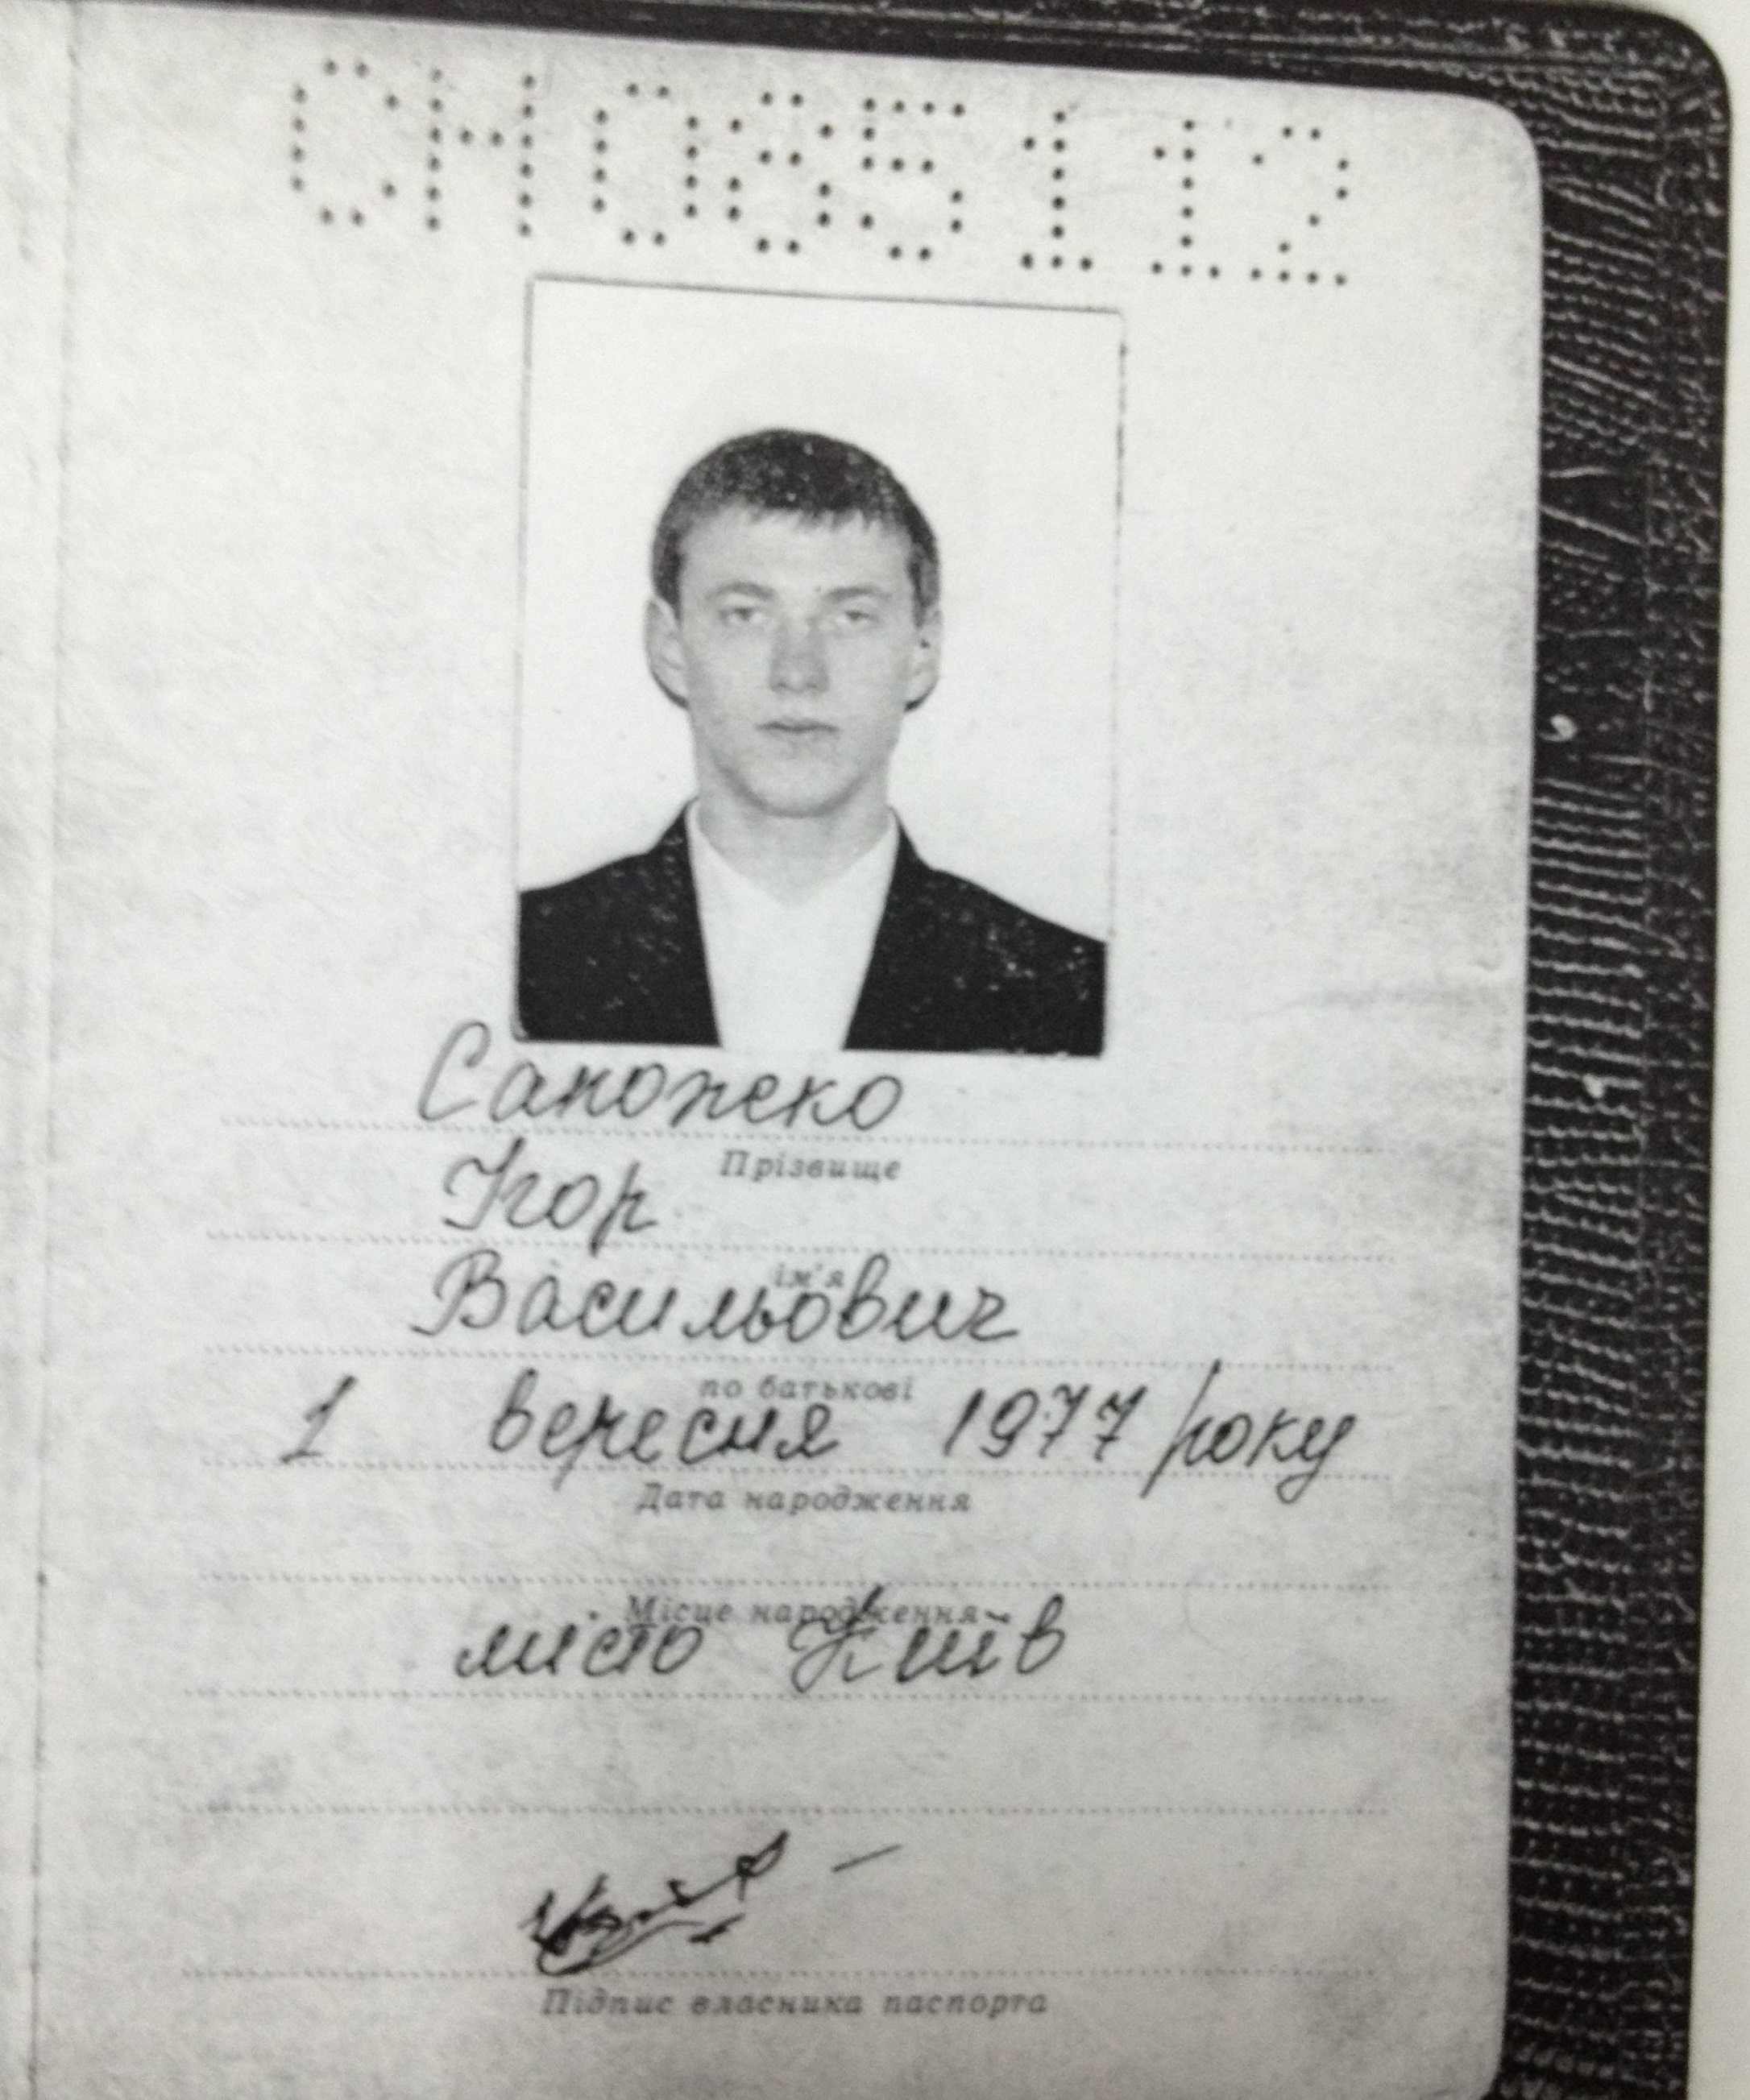 СН085112
Сапожко
Прізвище
Ігор
ім'я
Васильович
по батькові
1 вересня 1977 року
Дата народження
Місце народження
місто Київ
Підпис власника паспорта